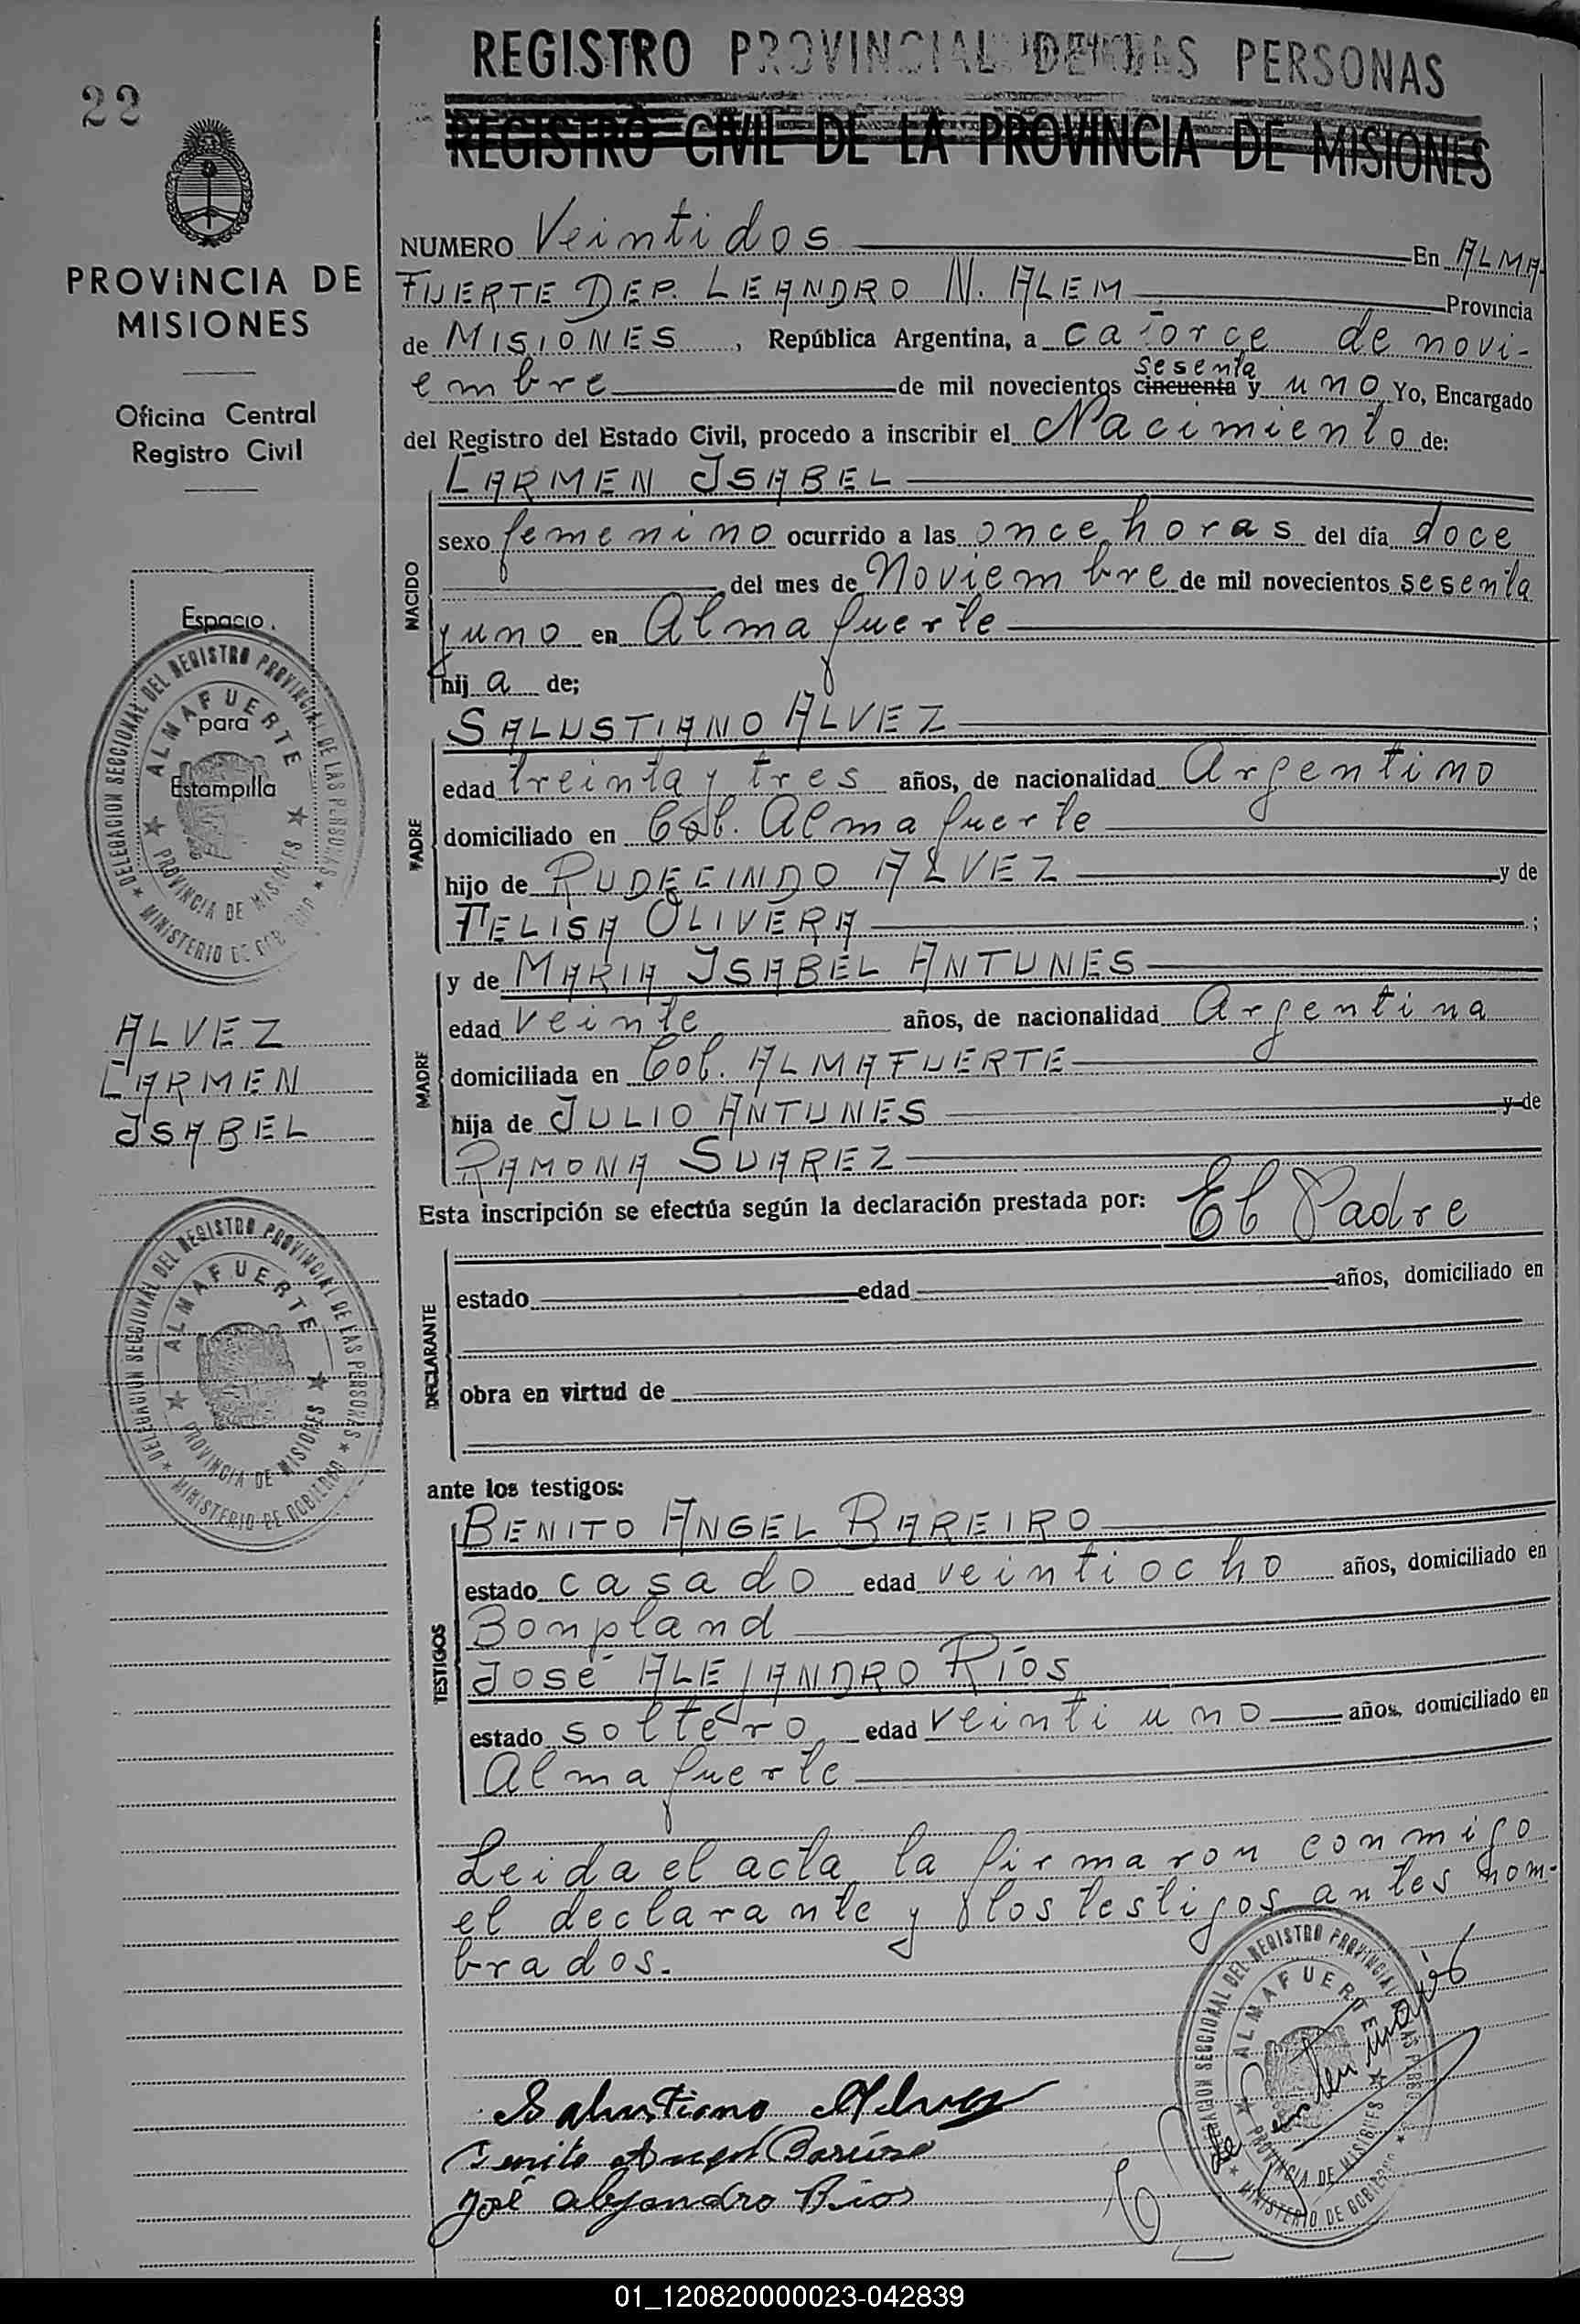 22
REGISTRO PROVINCIAL DE LAS PERSONAS
REGISTRO CIVIL DE LA PROVINCIA DE MISIONES
PROVINCIA DE
MISIONES
Oficina Central
Registro Civil
Espacio
para
Estampilla
DELEGACION SECCIONAL DEL REGISTRO PROVINCIAL DE LAS PERSONAS
ALMAFUERTE
PROVINCIA DE MISIONES
MINISTERIO DE GOBIERNO
ALVEZ
CARMEN
ISABEL
DELEGACION SECCIONAL DEL REGISTRO PROVINCIAL DE LAS PERSONAS
ALMAFUERTE
PROVINCIA DE MISIONES
MINISTERIO DE GOBIERNO
NUMERO Veintidos En ALMA
FUERTE DEP. LEANDRO N. ALEM Provincia
de MISIONES, República Argentina, a catorce de novi-
embre de mil novecientos cincuenta sesenta y uno Yo, Encargado
del Registro del Estado Civil, procedo a inscribir el Nacimiento de:
NACIDO
CARMEN ISABEL
sexo femenino ocurrido a las once horas del día doce
del mes de Noviembre de mil novecientos sesenta
y uno en Almafuerte
hij a de;
PADRE
SALUSTIANO ALVEZ
edad treinta y tres años, de nacionalidad Argentino
domiciliado en Col. Almafuerte
hijo de RUDECINDO ALVEZ y de
FELISA OLIVERA ;
MADRE
y de MARIA ISABEL ANTUNES
edad veinte años, de nacionalidad Argentina
domiciliada en Col. ALMAFUERTE
hija de JULIO ANTUNES y de
RAMONA SUAREZ
Esta inscripción se efectúa según la declaración prestada por: El Padre
DECLARANTE
estado edad años, domiciliado en
obra en virtud de
ante los testigos:
TESTIGOS
BENITO ANGEL BAREIRO
estado casado edad veintiocho años, domiciliado en
Bonpland
JOSÉ ALEJANDRO RÍOS
estado soltero edad veintiuno años, domiciliado en
Almafuerte
Leida el acta la firmaron conmigo
el declarante y los testigos antes nom-
brados.
Salustiano Alvez
Benito Angel Bareiro
José Alejandro Rios
DELEGACION SECCIONAL DEL REGISTRO PROVINCIAL DE LAS PERSONAS
ALMAFUERTE
PROVINCIA DE MISIONES
MINISTERIO DE GOBIERNO
01_120820000023-042839